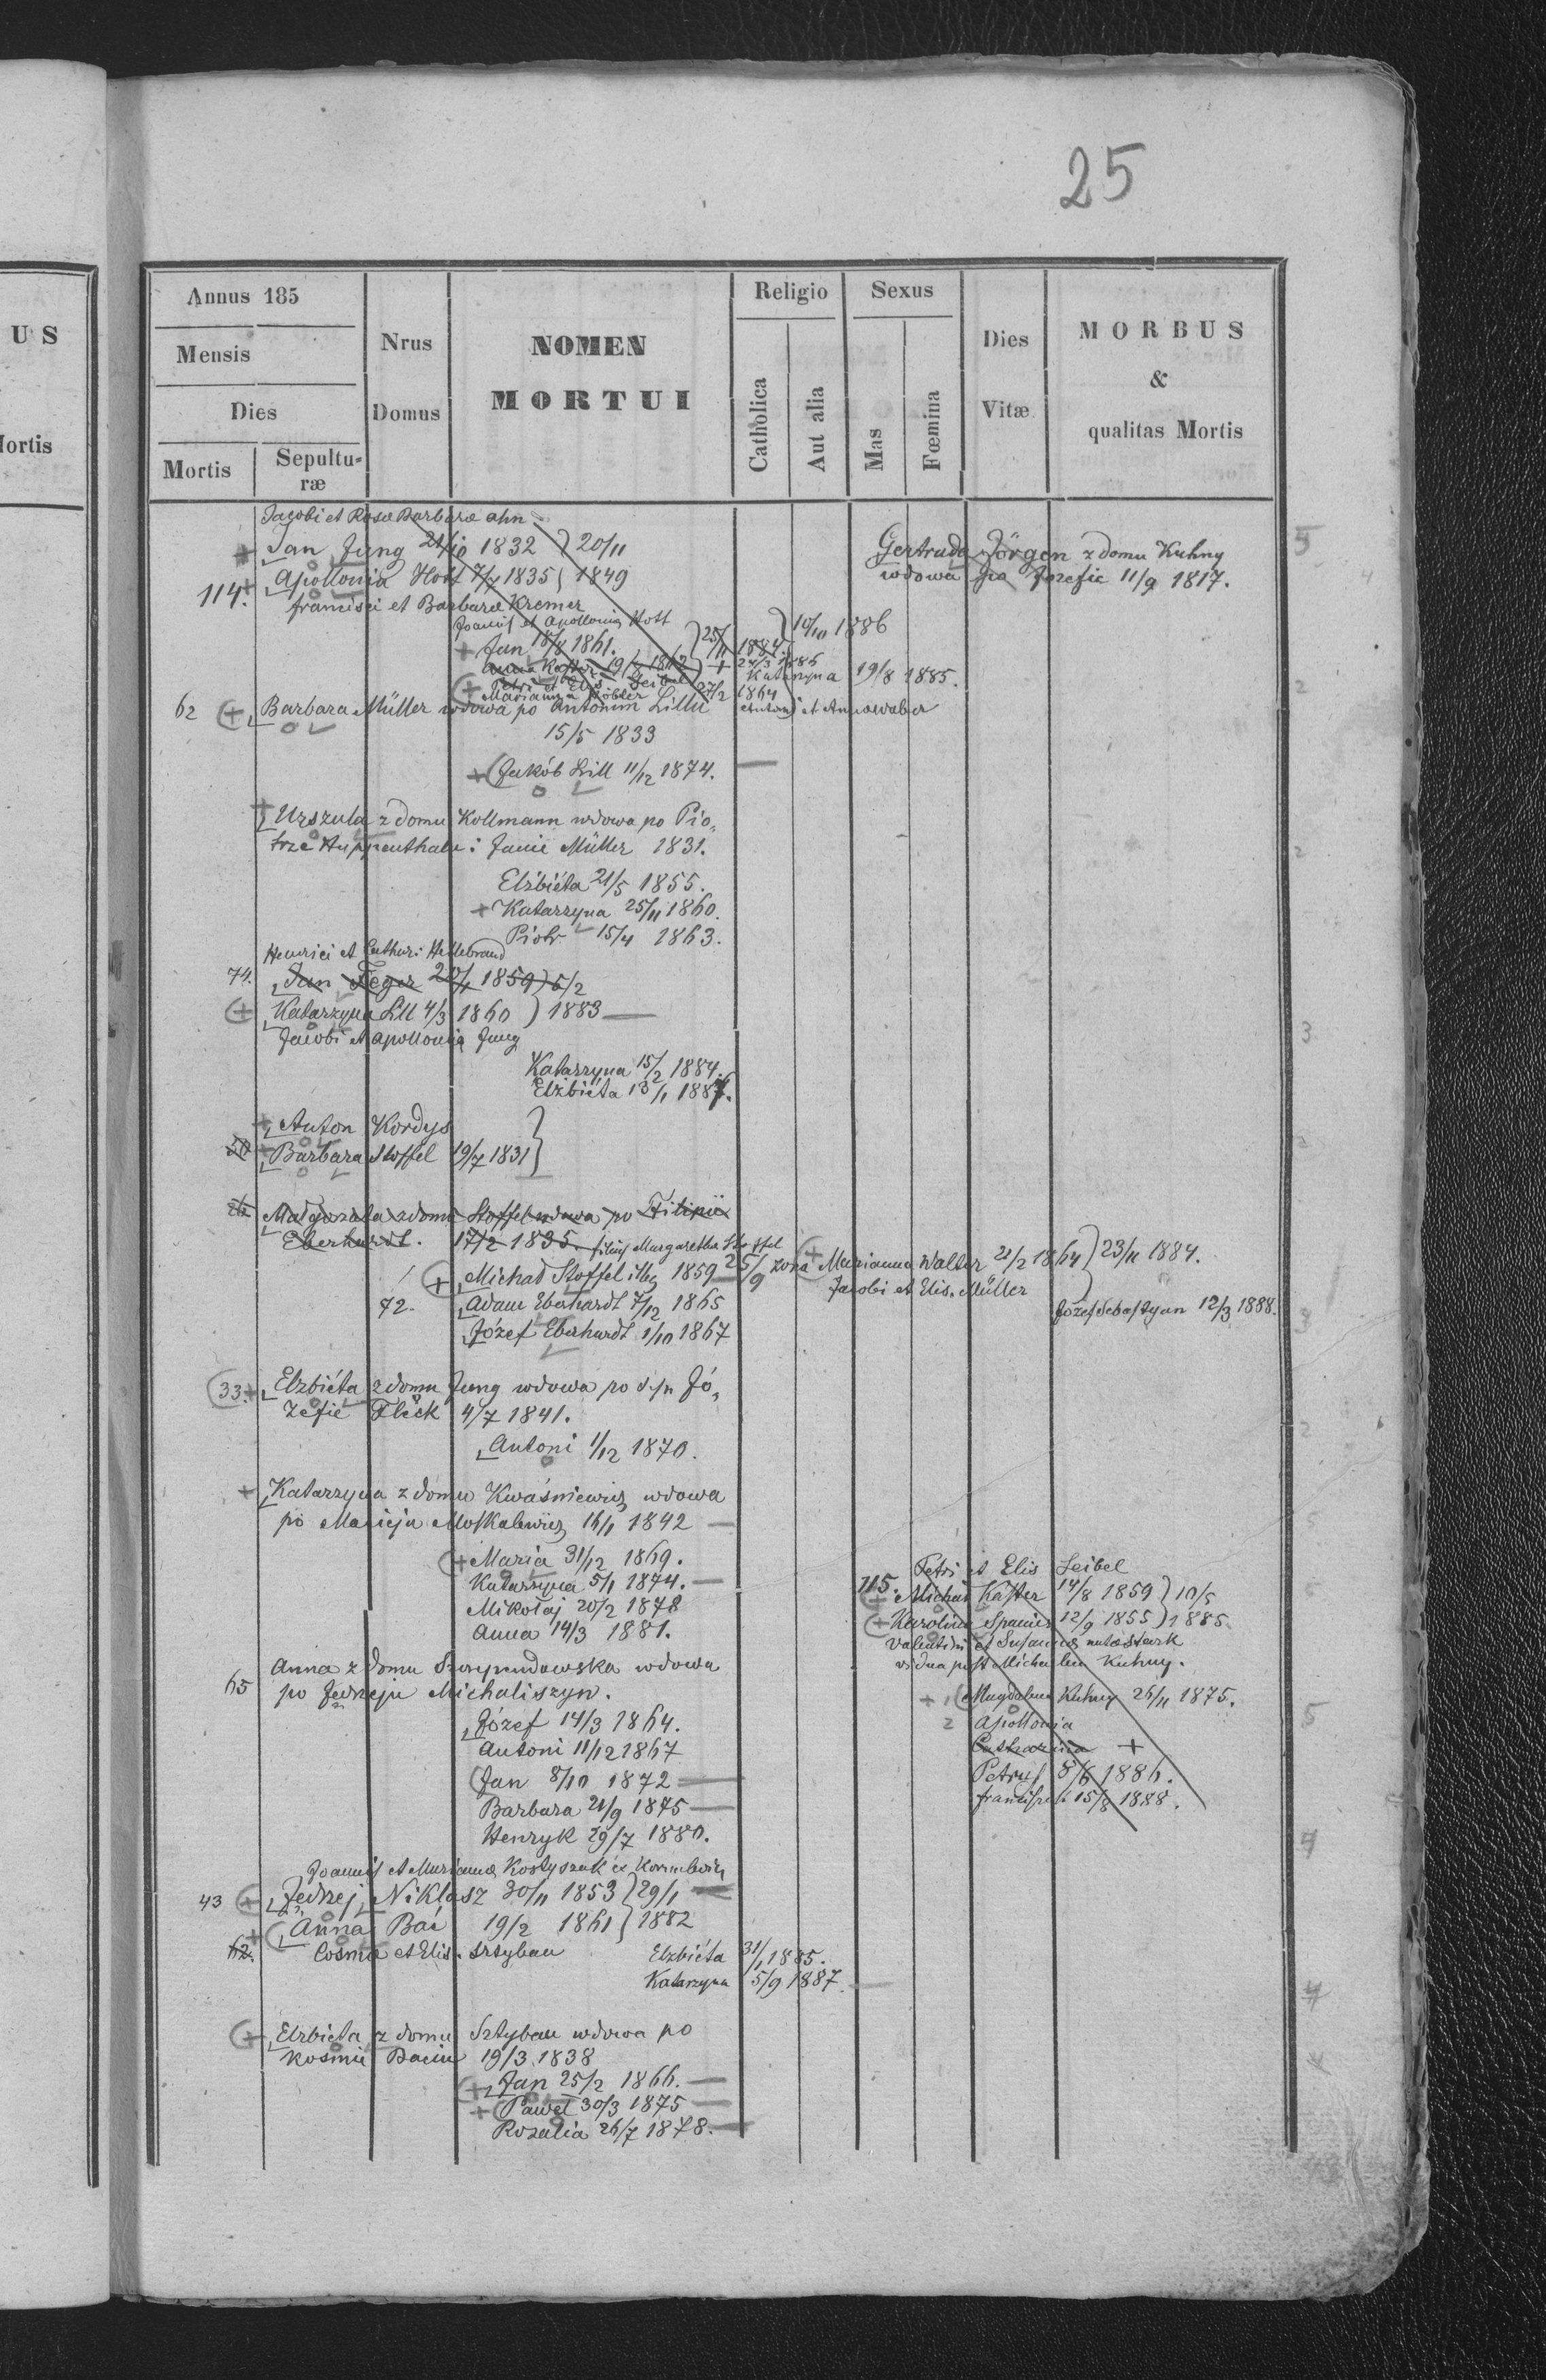 25
US
Mortis
Annus 185
Mensis
Dies
Mortis
Sepultu-
ræ
Nrus
Domus
NOMEN
MORTUI
Religio
Catholica
Aut alia
Sexus
Mas
Fœmina
Dies
Vitæ
MORBUS
&
qualitas Mortis
Jacobi et Rosa Barbara
+ Jan Jung 21/10 1832 } 20/11
114. + Apollonia Hott 7/4 1835 } 1849
francisci et Barbara Kremer
Gertruda Jörgen z domu Kuhny
wdowa po Jozefie 11/9 1817.
Joannis et Apollonia Hott
+ Jan 18/8 1861. } 25/11 1884. } 10/10 1886
19/8 1862 + 24/3 1886
Petri et Elis Seibel
Katarzyna 19/8 1885.
(+ Marianna 27/2 1864
62 (+ Barbara Müller wdowa po Antonim Lillu
15/5 1833
+ (Jakób Lill 11/12 1874.
+ Urszula z domu Kollmann wdowa po Pio„
trze Huppenthalu i Janie Müller 1831.
Elżbiéta 21/5 1855.
+ Katarzyna 25/11 1860.
Piotr 15/4 1863.
Henrici et Cathar: Hillebrand
74. Jan Feger 20/1 1859 ) 5/2
(+ Katarzyna Lill 4/3 1860 ) 1883
Jacobi et Apollonia Jung
Katarzyna 15/2 1884.
Elżbiéta 13/1 1887.
+ Anton Kordys
50 + Barbara Stoffel 19/7 1831 }
Małgorzata z domu Stoffel wdowa po Filipie
Eberhardt. 17/2 1835. filius Margaretha Stoffel
(+ Michał Stoffel illeg 1859 25/9 żona (+ Marianna Walter 21/2 1864 } 23/11 1884.
Jacobi et Elis. Müller
72. Adam Eberhardt 7/12 1865
Józef Sebastyan 12/3 1888.
Józef Eberhardt 1/10 1867
(33. + Elżbiéta z domu Jung wdowa po Jó„
zefie Fleck 4/7 1841.
Antoni 1/12 1870.
+ Katarzyna z domu Kwaśniewicz wdowa
po Macieju Moskalewicz 16/1 1842
(+ Maria 31/12 1869.
Katarzyna 5/1 1874.
Mikołaj 20/2 1878
Anna 14/3 1881.
Petri et Elis Seibel
115. (+ Michał Kaster 14/8 1859 ) 10/5
(+ Karolina Spanier 12/9 1855 ) 1885.
Valentini et Susanna nata Stark
vidua post Michaelem Kuhny.
+ 1 (Magdalena Kuhny 26/11 1875.
2 Apollonia
Catharina +
Petrus 8/6 1886.
francisca 15/8 1888.
65 Anna z domu wdowa
po Jędrzeju Michaliszyn.
Józef 14/3 1864.
Antoni 11/12 1867
(Jan 8/10 1872
Barbara 21/9 1875
Henryk 29/7 1880.
Joannis et Marianna
43 (+ Jędrzej Niklasz 30/11 1853 } 29/1
+ (Anna Bać 19/2 1861 } 1882
62. Cosma et Elis. Sztyban
Elżbiéta 31/1 1885.
Katarzyna 5/9 1887
(+ Elżbiéta z domu Sztyban wdowa po
Kosmie Baciu 19/3 1838
(+ Jan 25/2 1866.
+ (Paweł 30/3 1875
Rozalia 26/7 1878.